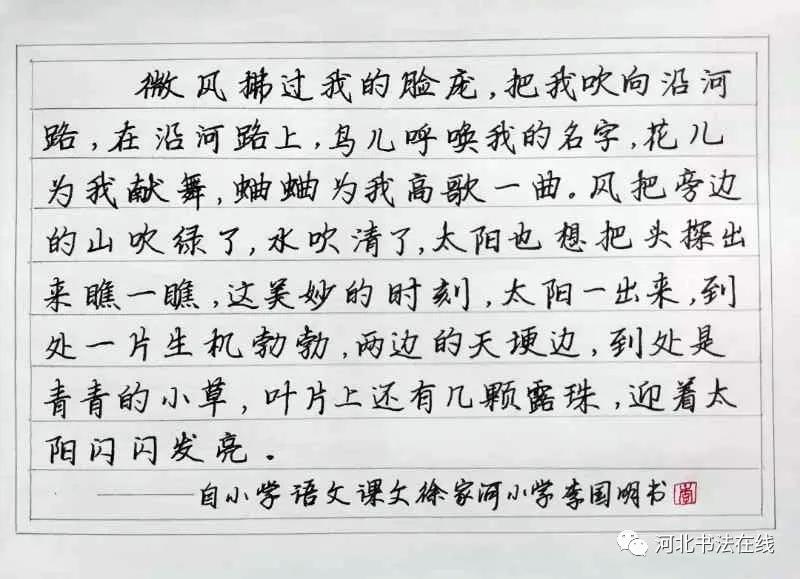 微风拂过我的脸庞，把我吹向沿河
路，在沿河路上，鸟儿呼唤我的名字，花儿
为我献舞，蛐蛐为我高歌一曲。风把旁边
的山吹绿了，水吹清了，太阳也想把头探出
来瞧一瞧，这美妙的时刻，太阳一出来，到
处一片生机勃勃，两边的天埂边，到处是
青青的小草，叶片上还有几颗露珠，迎着太
阳闪闪发亮。
——自小学语文课文徐家河小学李国明书
河北书法在线